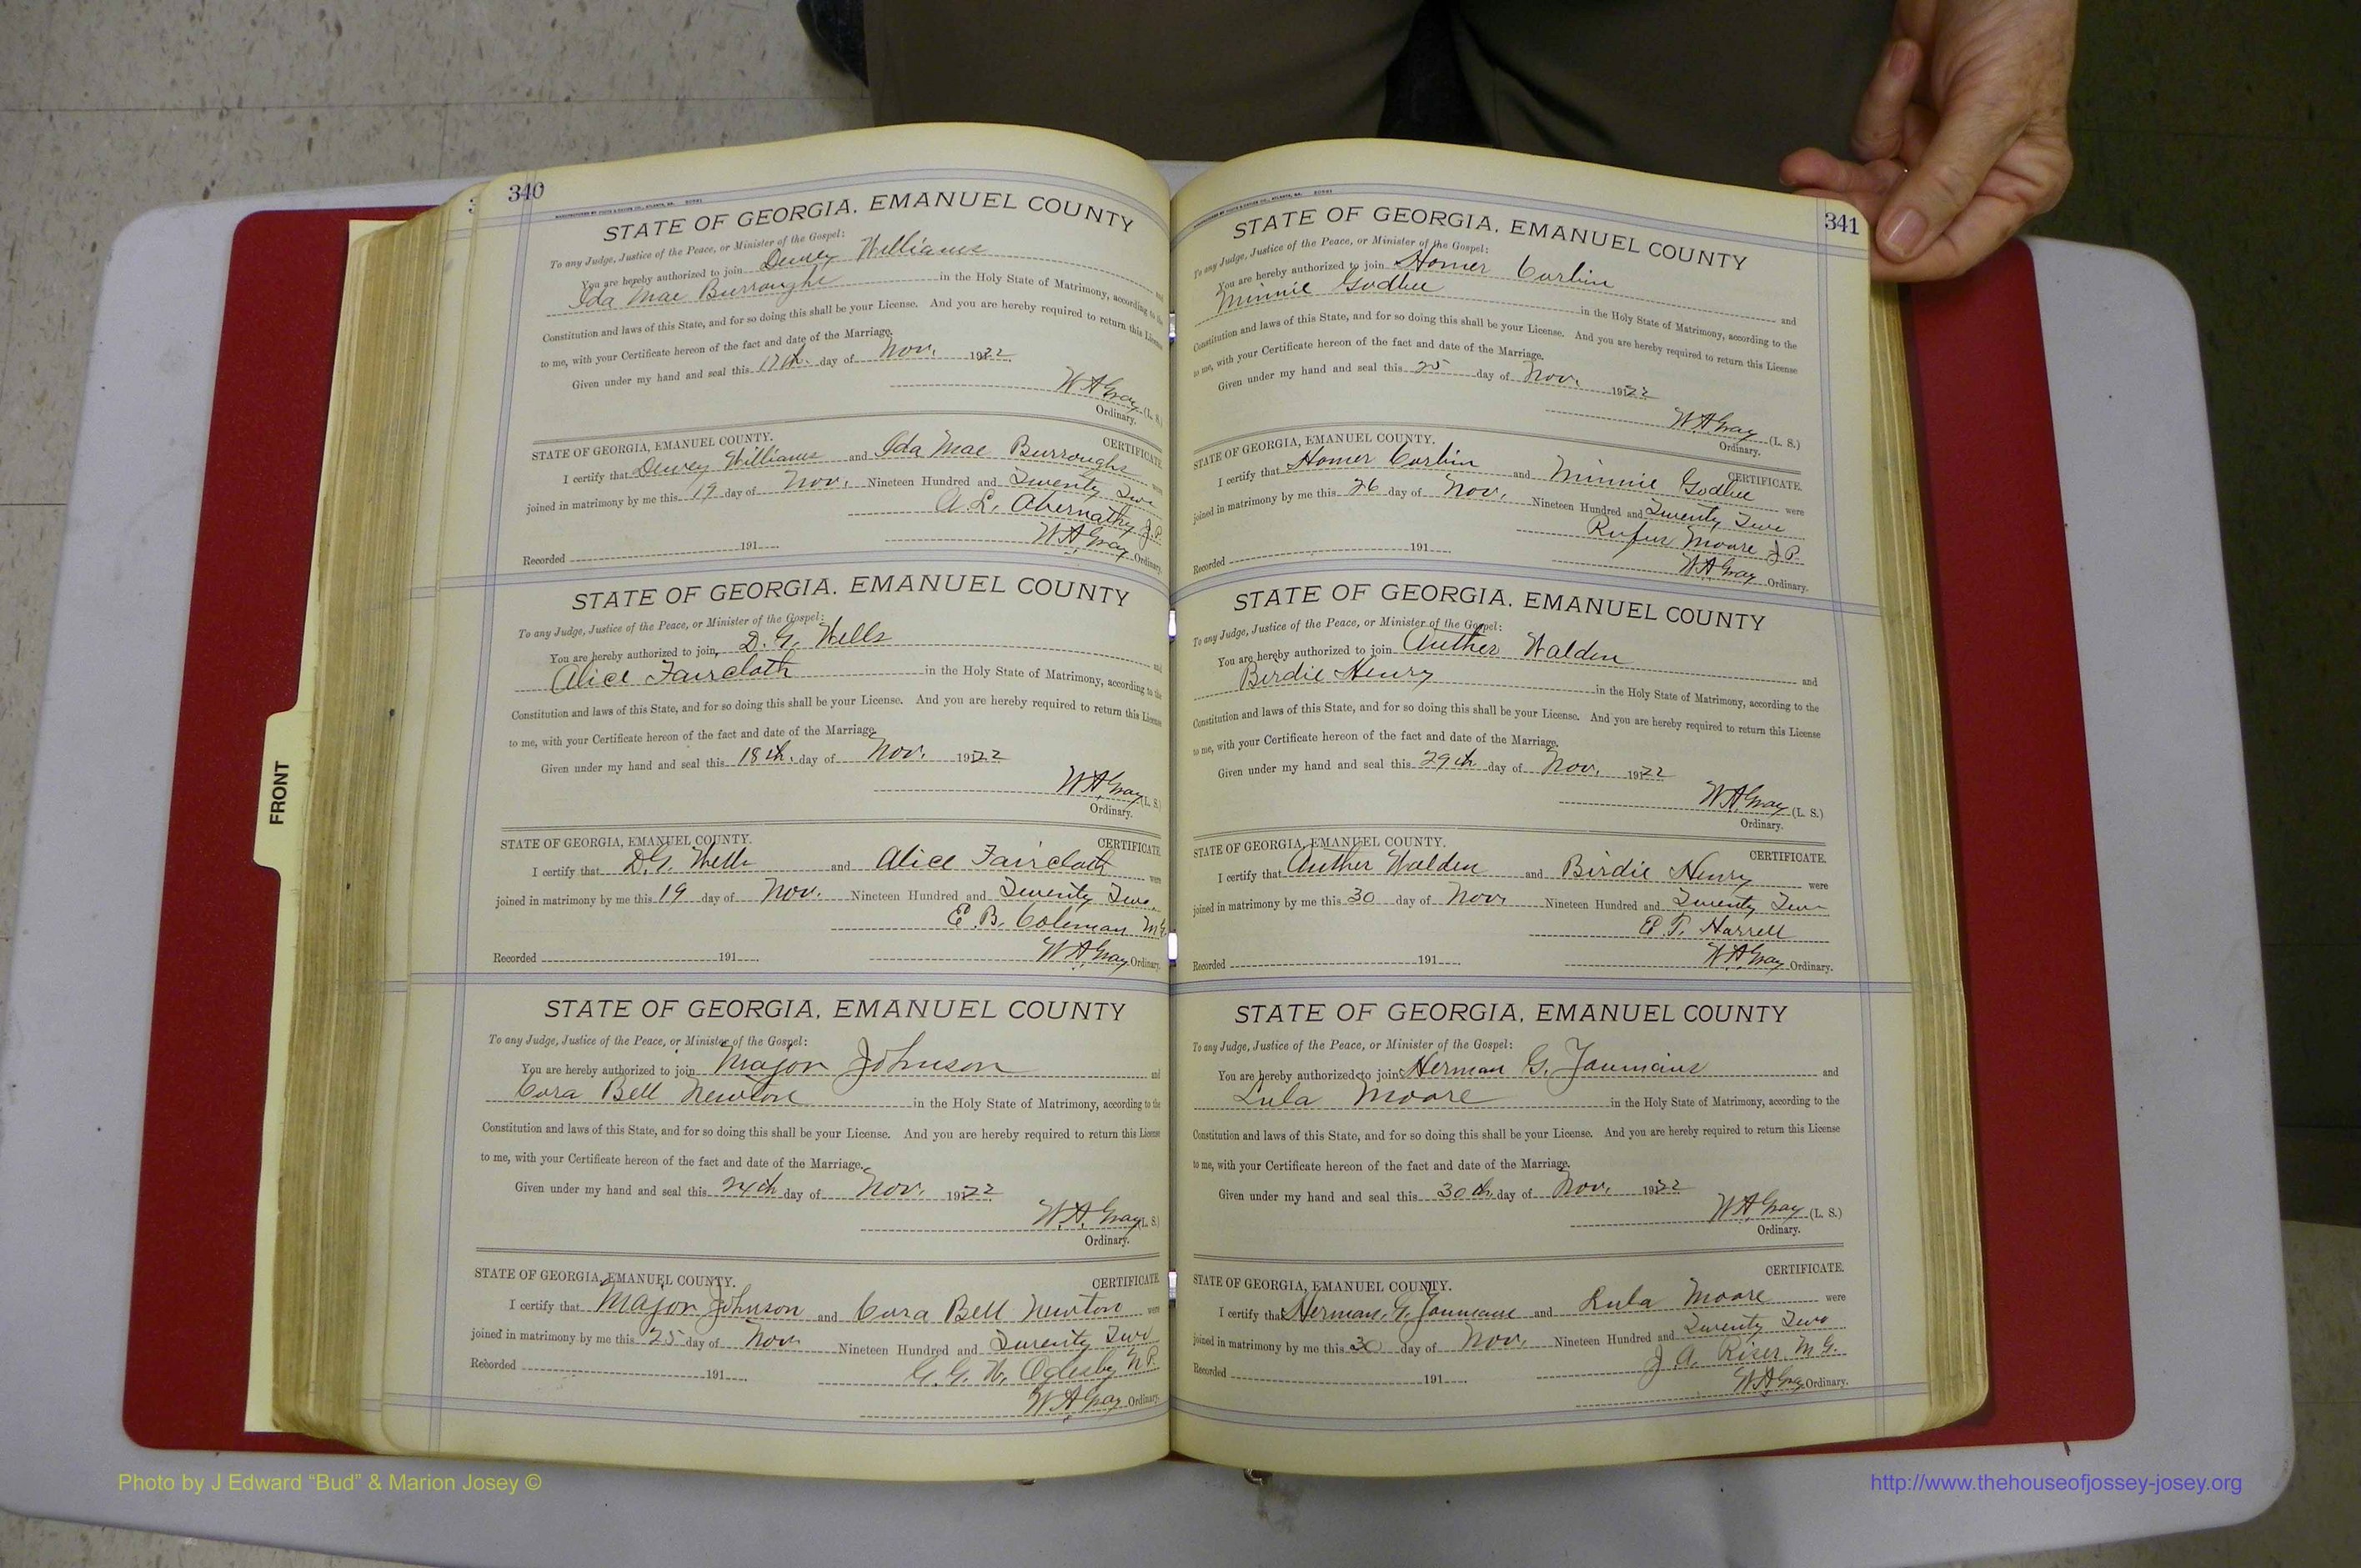 340
STATE OF GEORGIA, EMANUEL COUNTY
To any Judge, Justice of the Peace, or Minister of the Gospel:
You are hereby authorized to join Dewey Williams and
Ida Mae Burroughs in the Holy State of Matrimony, according to the
Constitution and laws of this State, and for so doing this shall be your License. And you are hereby required to return this License
to me, with your Certificate hereon of the fact and date of the Marriage.
Given under my hand and seal this 17th. day of Nov. 1922
W A Gray (L. S.)
Ordinary.
STATE OF GEORGIA, EMANUEL COUNTY. CERTIFICATE.
I certify that Dewey Williams and Ida Mae Burroughs were
joined in matrimony by me this 19 day of Nov. Nineteen Hundred and Twenty Two
A. L. Abernathy J.P.
Recorded 191 W A Gray Ordinary.
STATE OF GEORGIA, EMANUEL COUNTY
To any Judge, Justice of the Peace, or Minister of the Gospel:
You are hereby authorized to join D. G. Wells and
Alice Faircloth in the Holy State of Matrimony, according to the
Constitution and laws of this State, and for so doing this shall be your License. And you are hereby required to return this License
to me, with your Certificate hereon of the fact and date of the Marriage.
Given under my hand and seal this 18th. day of Nov. 1922
W A Gray (L. S.)
Ordinary.
STATE OF GEORGIA, EMANUEL COUNTY. CERTIFICATE.
I certify that D. G. Wells and Alice Faircloth were
joined in matrimony by me this 19 day of Nov. Nineteen Hundred and Twenty Two.
E. B. Coleman M.G.
Recorded 191 W A Gray Ordinary.
STATE OF GEORGIA, EMANUEL COUNTY
To any Judge, Justice of the Peace, or Minister of the Gospel:
You are hereby authorized to join Major Johnson and
Cora Bell Newton in the Holy State of Matrimony, according to the
Constitution and laws of this State, and for so doing this shall be your License. And you are hereby required to return this License
to me, with your Certificate hereon of the fact and date of the Marriage.
Given under my hand and seal this 24th day of Nov. 1922
W. A. Gray (L. S.)
Ordinary.
STATE OF GEORGIA, EMANUEL COUNTY. CERTIFICATE.
I certify that Major Johnson and Cora Bell Newton were
joined in matrimony by me this 25 day of Nov. Nineteen Hundred and Twenty Two
G. G. W. Oglesby N.P.
Recorded 191 W A Gray Ordinary.
341
STATE OF GEORGIA, EMANUEL COUNTY
To any Judge, Justice of the Peace, or Minister of the Gospel:
You are hereby authorized to join Homer Corbin and
Minnie Godbee in the Holy State of Matrimony, according to the
Constitution and laws of this State, and for so doing this shall be your License. And you are hereby required to return this License
to me, with your Certificate hereon of the fact and date of the Marriage.
Given under my hand and seal this 25 day of Nov. 1922
W. A Gray (L. S.)
Ordinary.
STATE OF GEORGIA, EMANUEL COUNTY. CERTIFICATE.
I certify that Homer Corbin and Minnie Godbee were
joined in matrimony by me this 26 day of Nov. Nineteen Hundred and Twenty Two
Rufus Moore J.P.
Recorded 191 W A Gray Ordinary.
STATE OF GEORGIA, EMANUEL COUNTY
To any Judge, Justice of the Peace, or Minister of the Gospel:
You are hereby authorized to join Auther Walden and
Birdie Henry in the Holy State of Matrimony, according to the
Constitution and laws of this State, and for so doing this shall be your License. And you are hereby required to return this License
to me, with your Certificate hereon of the fact and date of the Marriage.
Given under my hand and seal this 29th day of Nov. 1922
W A Gray (L. S.)
Ordinary.
STATE OF GEORGIA, EMANUEL COUNTY. CERTIFICATE.
I certify that Auther Walden and Birdie Henry were
joined in matrimony by me this 30 day of Nov. Nineteen Hundred and Twenty Two
T. Harrell
Recorded 191 W A Gray Ordinary.
STATE OF GEORGIA, EMANUEL COUNTY
To any Judge, Justice of the Peace, or Minister of the Gospel:
You are hereby authorized to join Herman G. and
Lula Moore in the Holy State of Matrimony, according to the
Constitution and laws of this State, and for so doing this shall be your License. And you are hereby required to return this License
to me, with your Certificate hereon of the fact and date of the Marriage.
Given under my hand and seal this 30th. day of Nov. 1922
W A Gray (L. S.)
Ordinary.
STATE OF GEORGIA, EMANUEL COUNTY. CERTIFICATE.
I certify that Herman G. and Lula Moore were
joined in matrimony by me this 30 day of Nov. Nineteen Hundred and Twenty Two
J. A. Riser. M.G.
Recorded 191 W A Gray Ordinary.
FRONT
Photo by J Edward “Bud” & Marion Josey ©
http://www.thehouseofjossey-josey.org